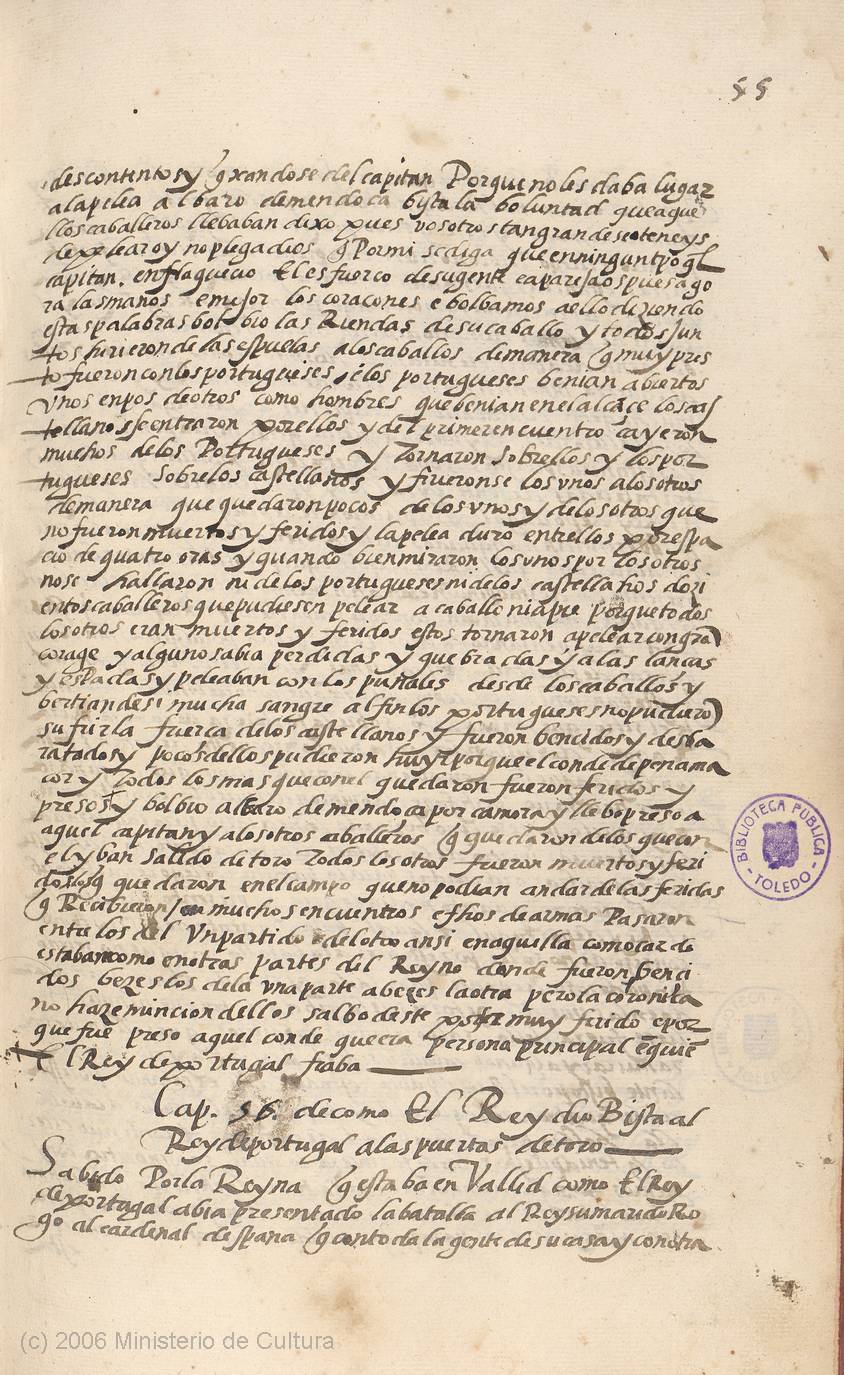 55
descontentos y q̃xandose del capitan Porque no les daba lugar
a la pelea albaro de mendoça bista la boluntad que aque
llos caballeros llebaban dixo pues vosotros tan gran deseo teneys
de pelear oy no plega a dios q̃ Por mi se diga que en ningun tpo ql
capitan. enflaquecio El esfuerço de su gente aparejaos pues ago
ra las manos e mejor los coraçones e bolbamos a ello diziendo
estas palabras bolbio las Riendas de su caballo y todos Jun
tos hirieron de las espuelas a los caballos de manera q̃ muy pres
to fueron con los portugueses, e los portugueses benian abiertos
vnos en pos de otros como hombres que benian en el alcãçe los cas
tellanos se entraron por ellos y del primer encuentro cayeron
muchos de los Portugueses y Tornaron sobrellos y los por
tugueses sobre los castellanos y fueronse los vnos a los otros
de manera que quedaron pocos de los vnos y de los otros que
no fueron muertos y feridos y la pelea duro entrellos por espa
cio de quatro oras y quando bien miraron los vnos por los otros
no se hallaron ni de los portugueses ni de los castellanos dozi
entos caballeros que pudiesen pelear a caballo ni a pie porque todos
los otros eran muertos y feridos estos tornaron a pelear con grã
corage y alguno sabia perdidas y quebradas ya las lanças
y espadas y peleaban con los puñales desde los caballos y
bertian de si mucha sangre al fin los portugueses no pudierõ
sufrir la fuerça de los castellanos y fueron bencidos y desba
ratados y pocos dellos pudieron huyr porque el conde de penama
cor y Todos los mas que con el quedaron fueron feridos y
presos y bolbio albaro de mendoça por çamora y llebo preso a
aquel capitan y a los otros caballeros q̃ quedaron de los que con
el yban salido de toro Todos los otros fueron muertos y feri
dos q̃ quedaron en el campo que no podian andar de las feridas
q̃ Recibieron / en muchos encuentros e fhos de armas Pasaron
entre los del Vn partido e del otro ansi en aquella comarca do
estaban como en otras partes del Reyno donde fueron benci
dos bezes los de la vna parte a bezes la otra pero la coronica
no haze mincion dellos salbo deste por ser muy ferido e por
que fue preso aquel conde que era persona principal e q̃ quiẽ
El Rey de portugal fiaba
Cap. 56. de como El Rey dio Bista al
Rey de portugal a las puertas de toro
Sabido Por la Reyna q̃ estaba en Vallid como El Rey
de portugal abia presentado la batalla al Rey su marido Ro
go al cardenal despana q̃ con toda la gente de su casa y con otra
BIBLIOTECA PÚBLICA
- TOLEDO -
(c) 2006 Ministerio de Cultura